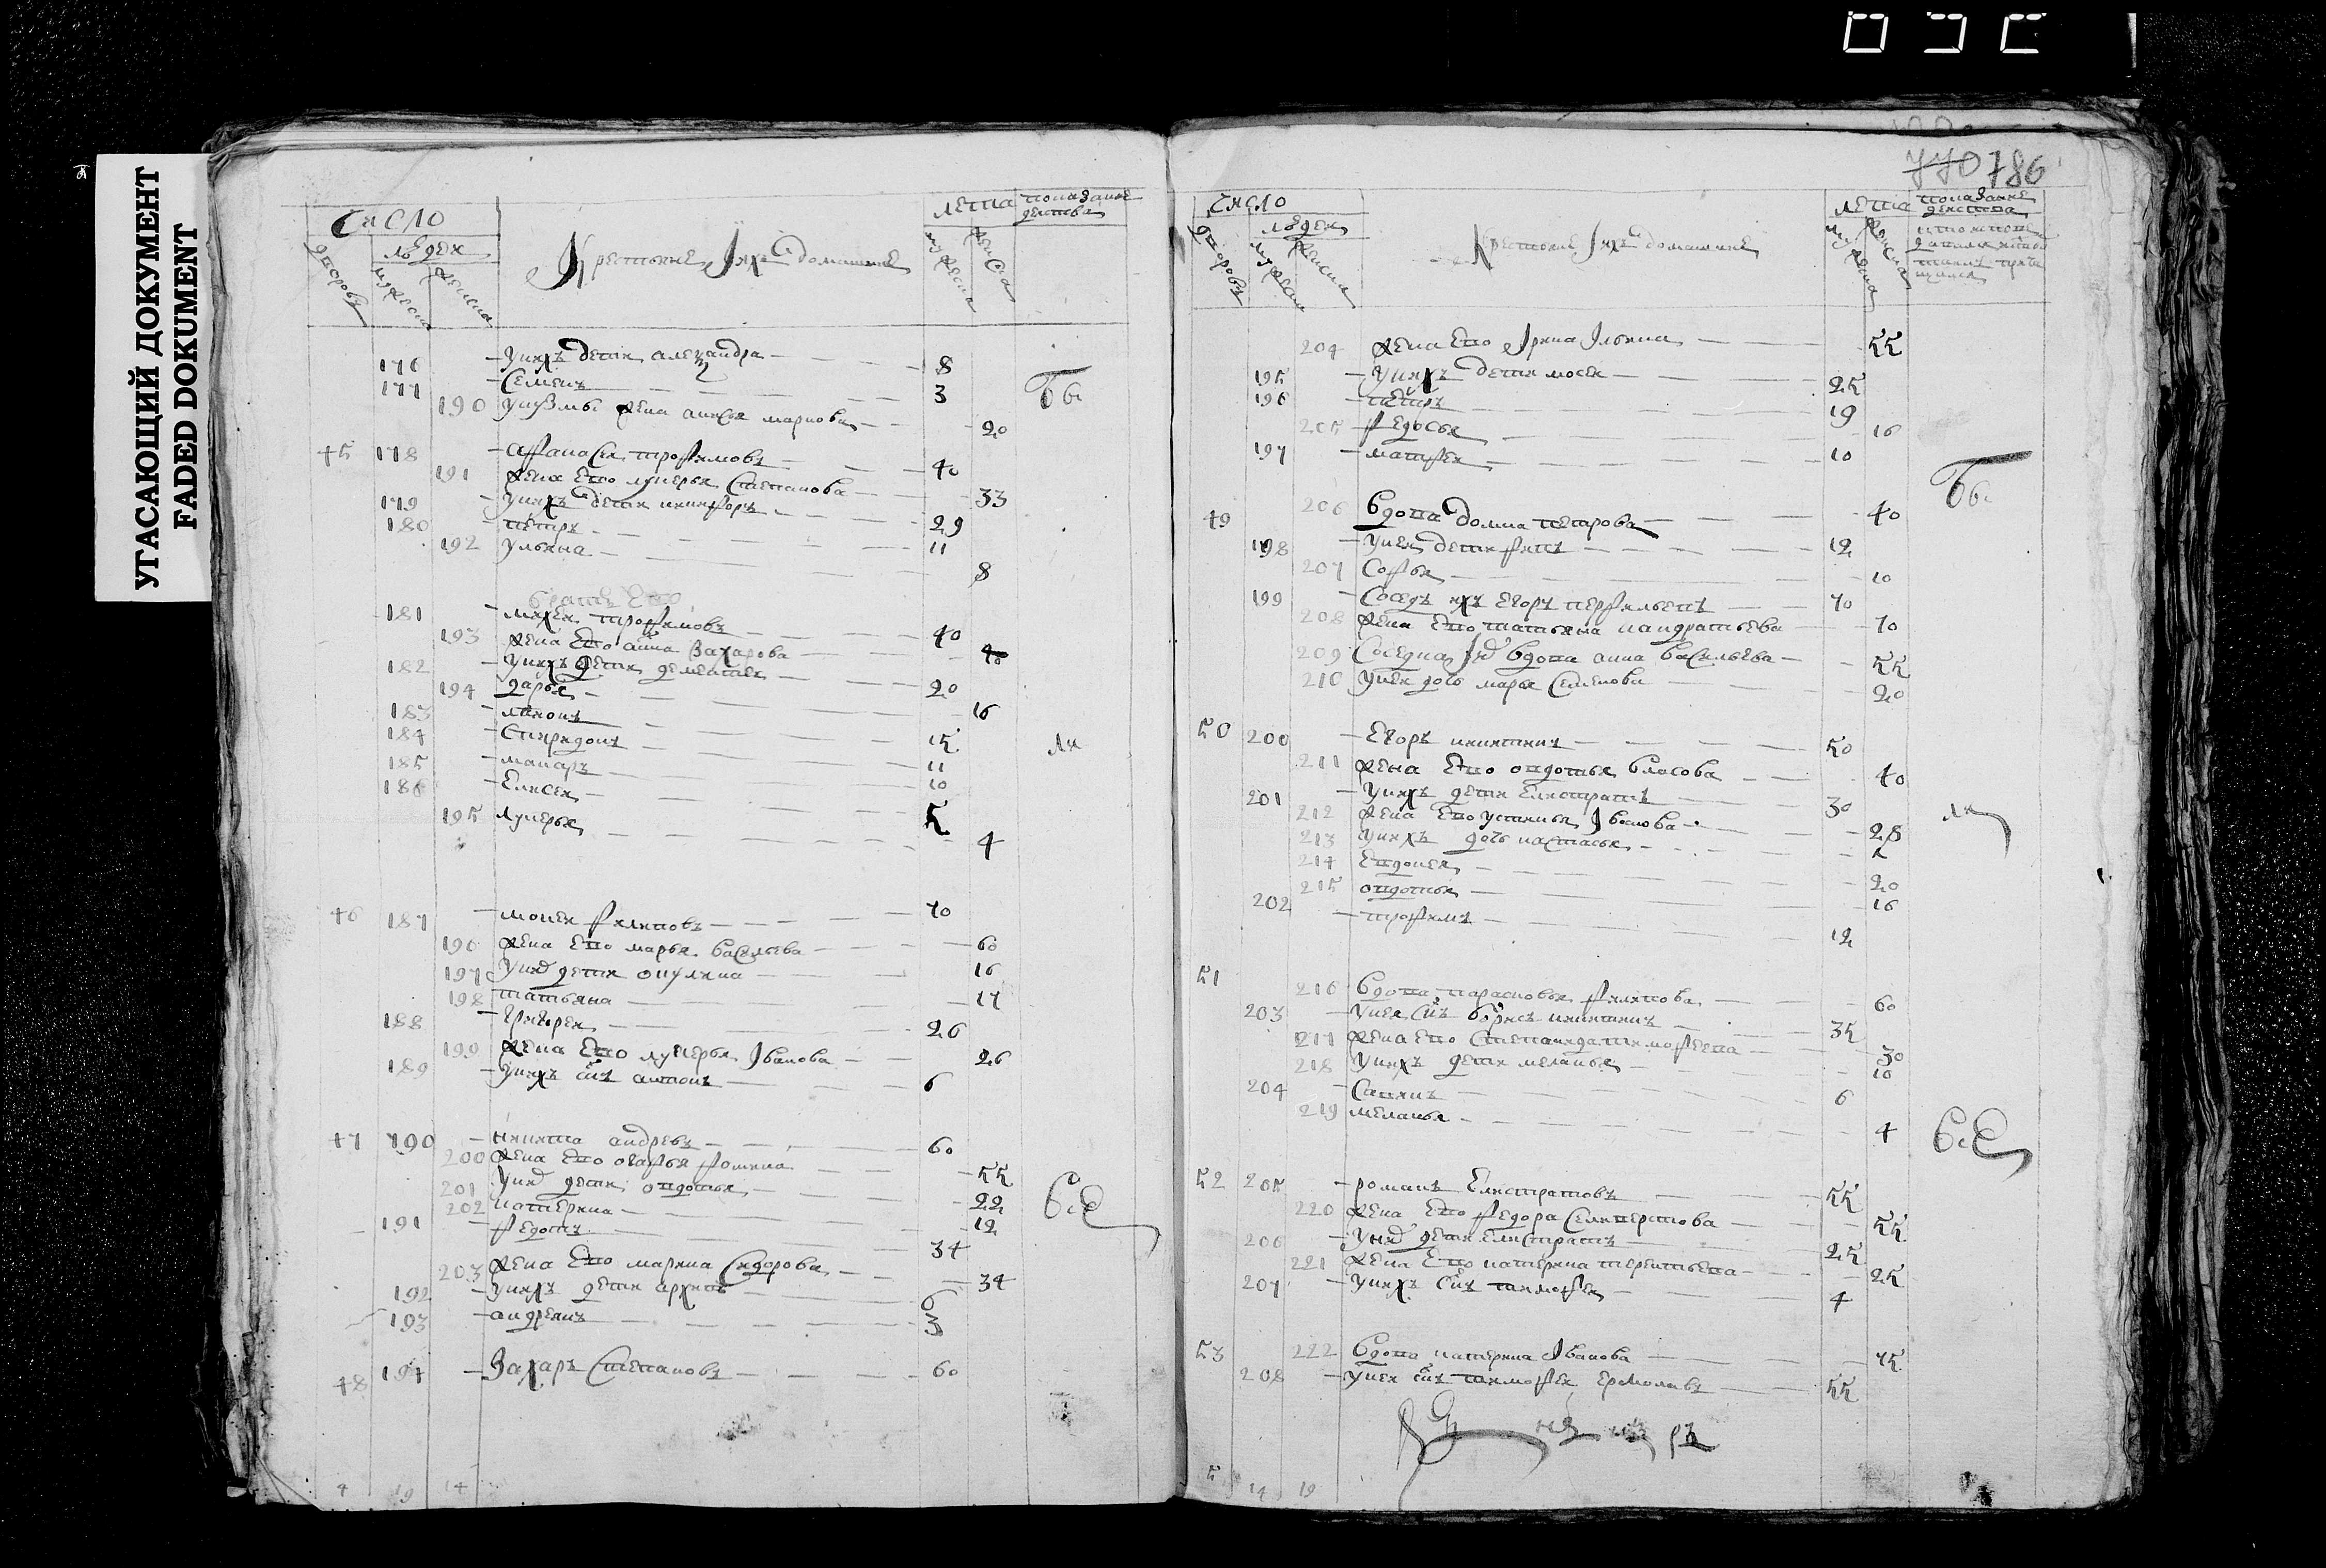 УГАСАЮЩИЙ ДОКУМЕНТ
FADED DOKUMENT
число
людей
дворовъ
мужеска
женска
Крестьяне и ихъ домашние
лета
мужеска
женска
показание
действа
176 У нихъ дети Александра 8
177 Семенъ 3
190 У Кузмы жена Анисья Маркова 20
45 178 Афанасей Трофимовъ 40
191 жена ево Лукерья Степанова 33
179 У нихъ дети Никифоръ 29
180 Петръ 11
192 Ульяна 8
братъ ево
181 Михей Трофимовъ 40
193 жена ево Анна Захарова 40
182 У нихъ дети Дементей 20
194 Дарья 16
183 15
184 Спиридонъ 11
185 Макаръ 10
186 Елисей 5
195 Лукерья 4
46 187 Мокей Филиповъ 70
196 жена ево Марья Васильева 60
197 У них дети Окулина 16
198 Татьяна 17
188 Григорей 26
199 жена ево Лукерья Иванова 26
189 У нихъ снъ Антонъ 6
47 190 Никита Андревъ 60
200 жена ево Агафья Фомина 55
201 У них дети Овдотья 22
202 Катерина 12
191 Федотъ 34
203 жена ево Марина Сидорова 34
192 У нихъ дети Архипъ 6
193 Андреянъ 3
48 194 Захаръ Степановъ 60
Бы
ли
все
4 19 14
770 786
число
людей
дворовъ
мужеска
женска
Крестьяне и ихъ домашние
лета
мужеска
женска
показание
действа
204 жена ево Ирина Ильина 55
195 У нихъ дети Мосей 25
196 Петръ 19
205 Федосья 16
197 Матфей 10
49 206 вдова Домна Петрова 40
198 У ней дети 12
207 Софья 10
199 Соседъ ихъ Егоръ Перфильевъ 70
208 жена ево Татьяна Кандратьева 70
209 Соседка их вдова Анна Васильева 55
210 У ней дочь Марья Семенова 20
50 200 Егоръ Никитинъ 50
211 жена ево Овдотья Власова 40
201 У нихъ дети Елистратъ 30
212 жена ево Устинья Иванова 28
213 У нихъ дочь Настасья 2
214 Евдокея 20
215 Овдотья 16
202 Трофимъ 12
51 216 вдова Парасковья Филипова 60
203 У нея снъ Борисъ Никитинъ 35
217 жена ево Степанида Тимофеева 30
218 У нихъ дети Меланья 10
204 Савинъ 6
219 Меланья 4
52 205 Романъ Елистратовъ 55
220 жена ево Федора Селиверстова 55
206 У них дети Елистратъ 25
221 жена ево Катерина Терентьева 25
207 У нихъ снъ Тимофей 4
53 222 вдова Катерина Иванова 75
208 У ней снъ Тимофей Ермолаевъ 55
Бы
ли
все
5 14 19